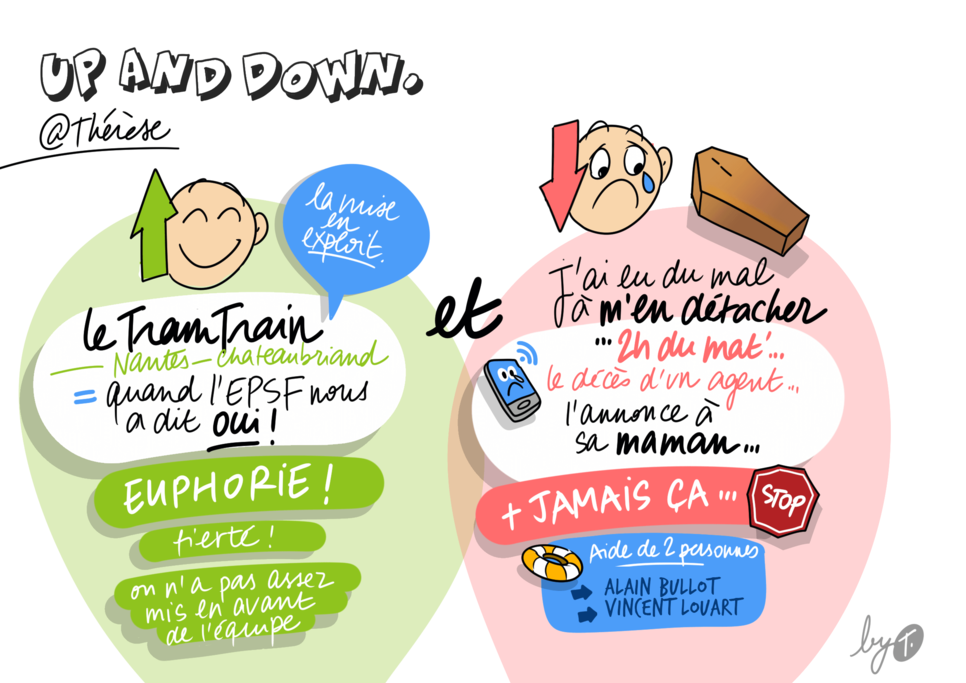 UP AND DOWN.
@Thérèse
la mise
en
exploit.
le TramTrain
Nantes-chateaubriand
= quand l'EPSF nous
a dit oui !
EUPHORIE !
fierté !
on n'a pas assez
mis en avant
de l'équipe
et
j'ai eu du mal
à m'en détacher
... 2h du mat'...
le décès d'un agent...
l'annonce à
sa maman...
+ JAMAIS ÇA ...
STOP
Aide de 2 personnes
ALAIN BULLOT
VINCENT LOUART
by T.